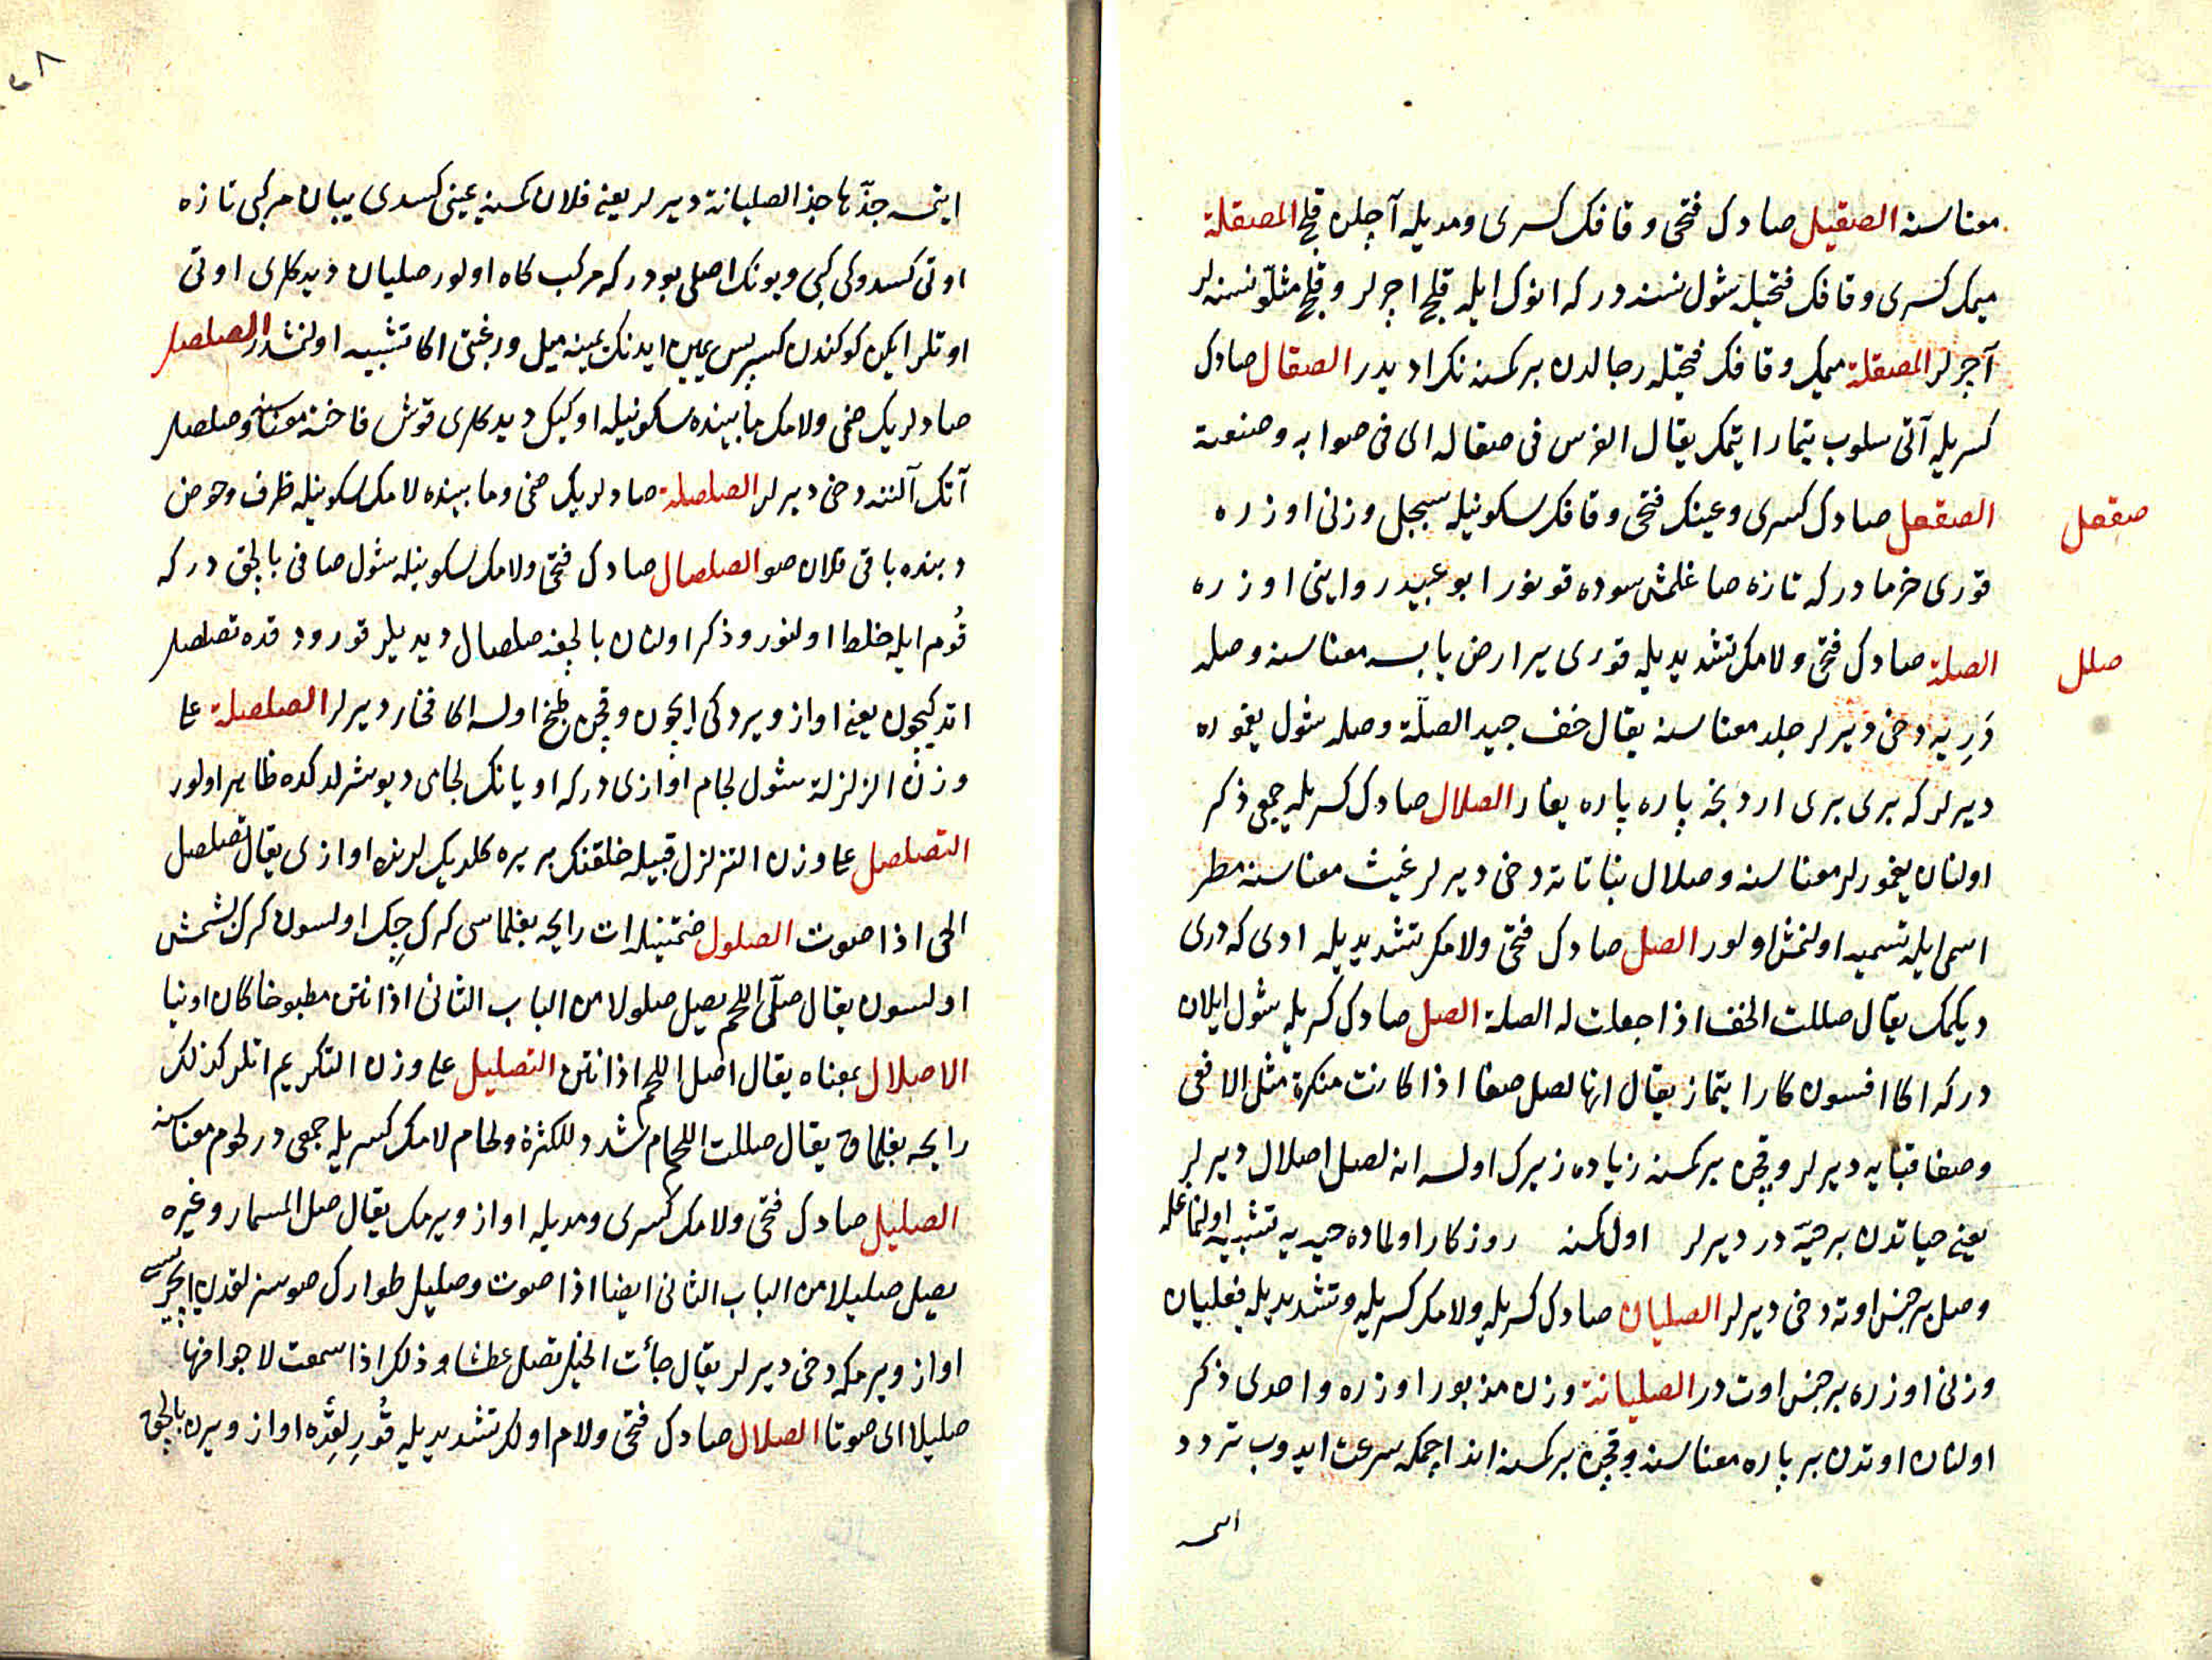 معناسنه الصقيل صادك فتحى وقافك كسرى ومديله آچلن قلج المصقلة
ميمك كسرى وقافك فتحيله شول نسنه در كه انوك ايله قلج اچرلر وقلج مثللو نسنه لر
آچرلر المصقلة ميمك وقافك فتحيله رجالدن بر كمسنه نك اديدر الصقال صادك
كسريله آتى سلوب تيمار ايتمك يقال الفرس فى صقاله اى فى صوابه وصنعته
صقعل
الصقعل صادك كسرى وعينك فتحى وقافك سكونيله سبحل وزنى اوزره
قورى خرما در كه تازه صاغلمش سوده قونور ابو عبيد روايتى اوزره
صلل
الصلة صادك فتحى ولامك تشديديله قورى ير ارض يابسه معناسنه وصله
دَرِ يه دخى ديرلر جلد معناسنه يقال خف جيد الصلّة وصله شول يغموره
ديرلر كه برى برى اردنجه پاره پاره يغار الصلال صادك كسريله جمعى ذكر
اولنان يغمورلر معناسنه وصلال نباتاته دخى ديرلر غيث معناسنه مطر
اسمى ايله تسميه اولنمش اولور الصل صادك فتحى ولامك تشديديله ادى كه درى
ديكمك يقال صللت الخف اذا جعلت له الصلة الصل صادك كسريله شول ايلان
در كه اكا افسون كار ايتماز يقال انها لصل صفا اذا كانت منكرة مثل الافعى
وصفا قتايه ديرلر وقچن بر كمسنه زياده زيرك اولسه انه لصل اصلال ديرلر
يعنى حياتدن بر حيّه در ديرلر اول كمسنه روزكار اولماده حيه يه تشبيه اولنماغله
وصل بر جنس اوته دخى ديرلر الصليان صادك كسريله ولامك كسريله وتشديديله فعليان
وزنى اوزره بر جنس اوت در الصليانة وزن مزبور اوزره واحدى ذكر
اولنان اوتدن بر پاره معناسنه وقچن بر كمسنه اند اچمكه سرعت ايدوب تردد
ايتمسه جذّها جذ الصليانة ديرلر يعنى فلان كمسنه يمينى كسدى يبان مركبى تازه
اوتى كسدوكى كبى وبونك اصلى بودر كه مركب كاه اولور صليان ديدكلرى اوتى
اوتلر ايكن كوكندن كسر پس يمين ايدنك يمينه ميل ورغبتى اكا تشبيه اولنمشدر الصلصل
صادلريك ضمى ولامك مابينده سكونيله اوكيك ديدكلرى قوش فاخته معناسنه وصلصل
آتك آلننه دخى ديرلر الصلصلة صادلريك ضمى وما بينده لامك سكونيله ظرف وحوض
دبنده باقى قلان صو الصلصال صادك فتحى ولامك سكونيله شول صافى بالچق در كه
قُوم ايله خلط اولنور وذكر اولنان بالچغه صلصال ديديلر قوروددقده تصلصل
اتديكيچون يعنى اواز ويردكى ايچون وقچن طبخ اولسه اكا فخار ديرلر الصلصلة على
وزن الزلزلة شول لجام اوازى در كه اويانك لجامى ديوشرلدكده ظاهر اولور
التصلصل على وزن التزلزل قبيله خلقنك بر يره كلدكلرنده اوازى يقال تصلصل
الحى اذا صوت الصلول ضمتينله ات رايحه بغلماسى كرك چيك اولسون كرك بشمش
اولسون يقال صلّ اللحم يصل صلولا من الباب الثانى اذا نتن مطبوخا كان او نيا
الاصلال بمعناه يقال اصل اللحم اذا نتن التصليل على وزن التكريم اتلر كذلك
رايحه بغلمق يقال صللت اللحام شدد للكثرة ولحام لامك كسريله جمعى در لحوم معناسنه
الصليل صادك فتحى ولامك كسرى ومديله اواز ويرمك يقال صل المسمار وغيره
يصل صليلا من الباب الثانى ايضا اذا صوت وصليل طوارك صوسزلقدن ايچريسى
اواز ويرمكه دخى ديرلر يقال جأت الخيل تصل عطشا وذلك اذا سمعت لاجوافها
صليلا اى صوتا الصلال صادك فتحى ولام اولك تشديديله قُورِلقِده اواز ويرن بالچق